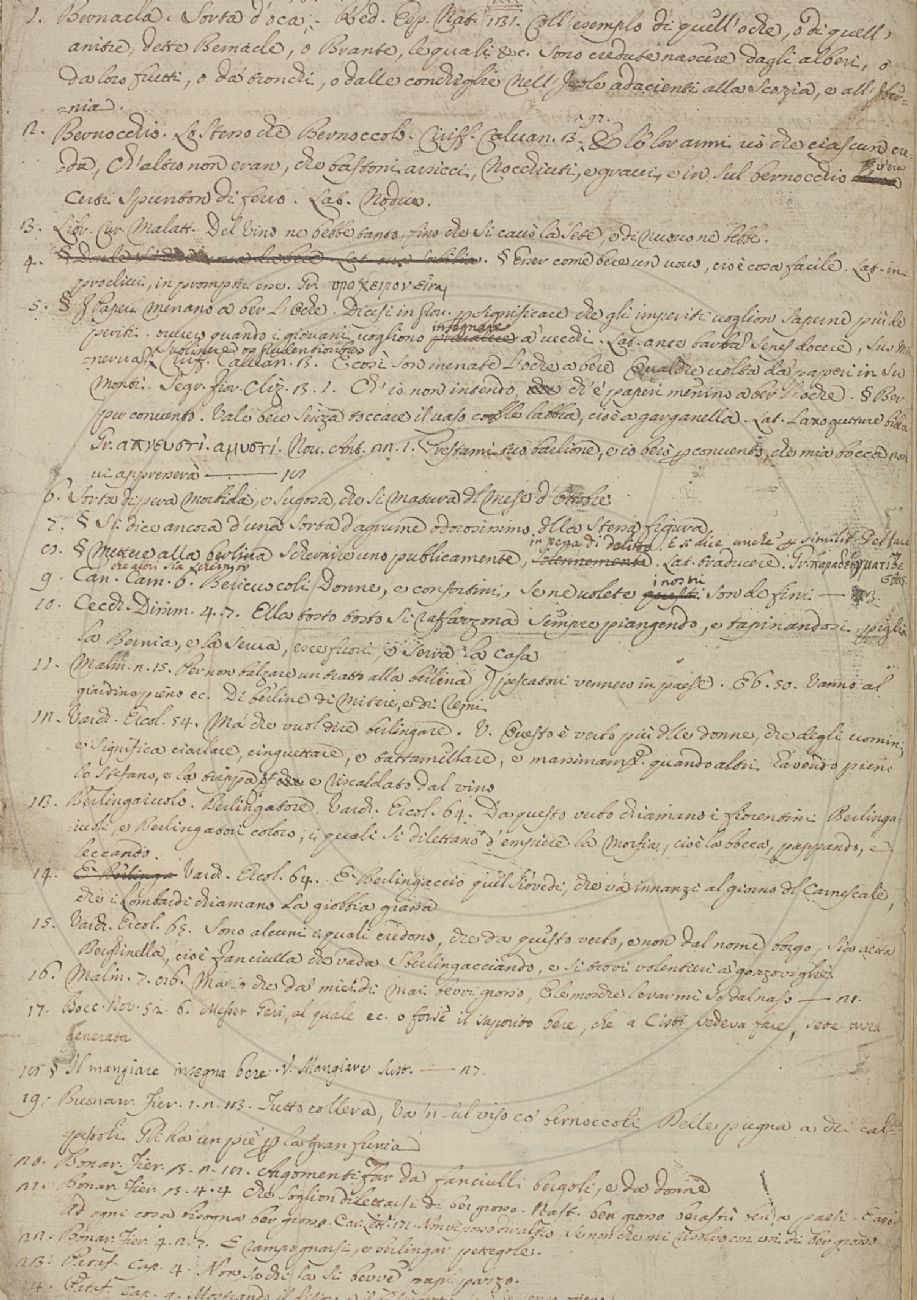 1. Bernacla. Sorta d'oca. Red. Esp. Nat. 131. Coll'esempio di quell'oche, o di quell'
anitre, dette Bernacle, o Brante, le quali &c. sono credute nascere dagli alberi, o
da loro frutti, o da' tronchi, o dalle conchiglie nell'Isole adacienti alla Scozia, e all'Iber=
=nia.
2. Bernocchio. Lo stesso che Bernoccolo. Ciriff. Calvan. 3. 97. E lo lor armi vi che ciascun cre=
=da, Ch'altro non eran, che bastoni arsicci, Nocchiuti, e gravi, e in sul bernocchio
Certi spunton di ferro. Lat. Nodus.
3. Libr. cur. Malatt. Del vino ne bebbe tanto, fino che si cavò la sete, e di nuovo ne bebbe.
4. § Esser come bere un uovo, cioè cosa facile. Lat. in
proclivi, in promptu esse. Gr.
5. § I Paperi menano a ber l'Oche. Dicesi in prov. per significare che gli imperiti voglion saperne più de
periti. ovvero quando i giovani vogliono insegnare a' vecchi. Lat. ante barbam senes docere, sus Mi=
=nervam Ciriff. Calvan. 3. E così son menate l'oche a bere Qualche volta da' paperi in su
Morbi. Segr. fior. Cliz. 3. 1. Ch'io non intendo, ch'e' paperi menino a ber l'oche. § Ber
per convento. Vale bere senza toccare il vaso colle labbra, cioè a garganella. Lat. Laxo gutture bibere
Gr. απνευστί. αμυστί. Nov. ant. Prestami tuo barlione, e io berò p convento, che mia bocca non
vi appresserà
6. Sorta di pera morbida, e sugosa, che si matura del Mese d'Ottobre
7. § Si dice ancora d'una Sorta d'agrume odorosissimo, della stessa figura.
8. § Mettere alla berlina Schernire uno publicamente, in pena di delitto. E si dice anche p similit. Del fare
Lat. traducere. Gr. παραδειγματίζε
9. Can. Carn. 6. Bericuocoli Donne, e confortini, Se ne volete i nostri son de fini. — 3.
10. Cecch. Dissim. 4. 7. Ella tosto tosto si raffazzona Sempre piangendo, e tapinandosi, piglia
la Bernia, e la serva, esce fuori, e serra la casa
11. Malm. Per non balzare un tratto alla berlina I pescatori vennero in paese. E 6. 50. Vanno al
giardino pieno ec. Di berline di Mitere, e di Remi
12. Varch. Ercol. 54. Ma che vuol dire berlingare. V. Questo è verbo più delle donne, che degli uomini,
e significa ciarlare, cinguettare, e tattamellare, e massimamte. quando altri avendo pieno
lo stefano, e la trippa e riscaldato dal vino
13. Berlingaiuolo. Berlingatore. Varch. Ercol. 64. Da questo verbo chiamano i fiorentini Berlinga=
iuoli, e Berlingatori coloro, i quali si dilettano d'empiere la morfia, cioè la bocca, pappando, e
leccando.
14. Varch. Ercol. 64. E Berlingaccio quel Giovedì, che va innanzi al giorno del Carnesciale,
che i Lombardi chiamano la giobbia grassa
15. Varch. Ercol. 65. Sono alcuni i quali credono, che da questo verbo, e non dal nome borgo, sia detta
Berghinella, cioè fanciulla che vada Sberlingacciando, e si trovi volentieri a' gozzovigli.
16. Malm. 7. Mai che da' miei dì mai bevvi grosso, E le mosche levarmi so dal naso
17. Bocc. Nov. 52. 6. Messer Geri, al quale ec. o forse il saporito bere, che a Cisti vedeva fare, sete avea
generata
18 § Il mangiare insegna bere. V. Mangiare sust.
19. Buonarr. Fier. Tutto collera, Va 'n sul viso co' bernoccoli Delle pugna a chi cal=
=pestoli Gli ha un piè p la gran furia
20. Bonar. Fier. 3. Argomenti Far da fanciulli bergoli, e da donne
21. Bonar. Fier. 3. 4. 4 Che soglion dilettarsi di ber grosso.
Ad ogni cosa bisogna ber grosso.
22. Bonar. Fier. 4. 2. 7. E berlingar pettegole.
23. Pataf. Cap. 4.
24. Pataf. Cap. 9.